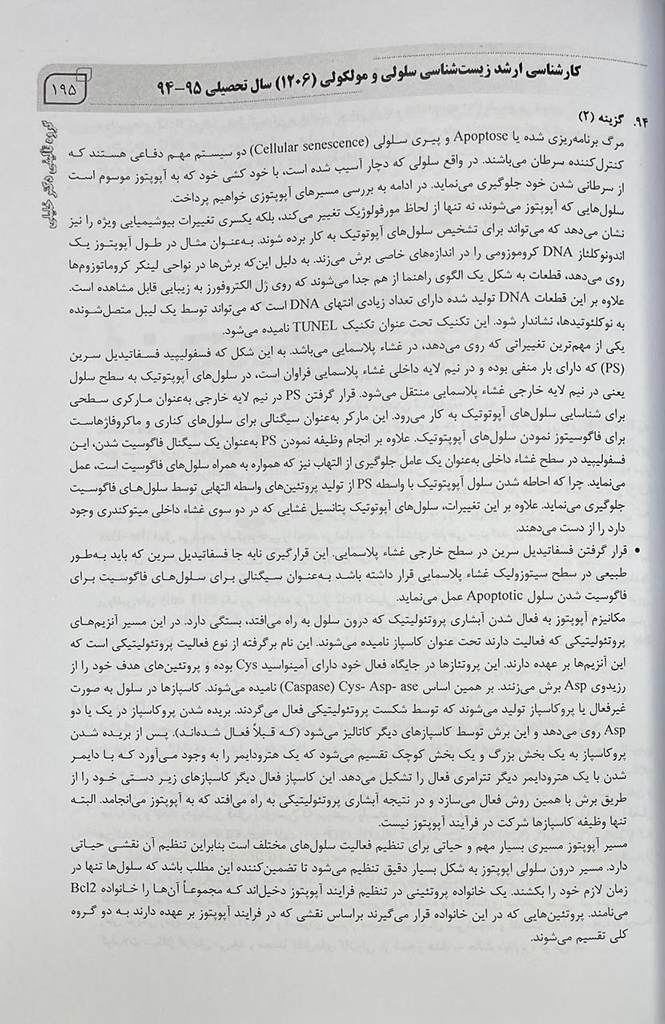 کارشناسی ارشد زیست‌شناسی سلولی و مولکولی (۱۲۰۶) سال تحصیلی ۹۵-۹۴
۱۹۵
۹۴. گزینه (۲)
مرگ برنامه‌ریزی شده یا Apoptose و پیری سلولی (Cellular senescence) دو سیستم مهم دفاعی هستند که
کنترل‌کننده سرطان می‌باشند. در واقع سلولی که دچار آسیب شده است، با خود کشی خود که به آپوپتوز موسوم است
از سرطانی شدن خود جلوگیری می‌نماید. در ادامه به بررسی مسیرهای آپوپتوزی خواهیم پرداخت.
سلول‌هایی که آپوپتوز می‌شوند، نه تنها از لحاظ مورفولوژیک تغییر می‌کند، بلکه یکسری تغییرات بیوشیمیایی ویژه را نیز
نشان می‌دهد که می‌تواند برای تشخیص سلول‌های آپوتوتیک به کار برده شوند. به‌عنوان مثال در طول آپوپتوز یک
اندونوکلئاز DNA کروموزومی را در اندازه‌های خاصی برش می‌زند. به دلیل این‌که برش‌ها در نواحی لینکر کروماتوزوم‌ها
روی می‌دهد، قطعات به شکل یک الگوی راهنما از هم جدا می‌شوند که روی ژل الکتروفورز به زیبایی قابل مشاهده است.
علاوه بر این قطعات DNA تولید شده دارای تعداد زیادی انتهای DNA است که می‌تواند توسط یک لیبل متصل‌شونده
به نوکلئوتیدها، نشاندار شود. این تکنیک تحت عنوان تکنیک TUNEL نامیده می‌شود.
یکی از مهم‌ترین تغییراتی که روی می‌دهد، در غشاء پلاسمایی می‌باشد. به این شکل که فسفولیپید فسفاتیدیل سرین
(PS) که دارای بار منفی بوده و در نیم لایه داخلی غشاء پلاسمایی فراوان است، در سلول‌های آپوپتوتیک به سطح سلول
یعنی در نیم لایه خارجی غشاء پلاسمایی منتقل می‌شود. قرار گرفتن PS در نیم لایه خارجی به‌عنوان مارکری سطحی
برای شناسایی سلول‌های آپوتوتیک به کار می‌رود. این مارکر به‌عنوان سیگنالی برای سلول‌های کناری و ماکروفاژهاست
برای فاگوسیتوز نمودن سلول‌های آپوپتوتیک. علاوه بر انجام وظیفه نمودن PS به‌عنوان یک سیگنال فاگوسیت شدن، این
فسفولیپید در سطح غشاء داخلی به‌عنوان یک عامل جلوگیری از التهاب نیز که همواره به همراه سلول‌های فاگوسیت است، عمل
می‌نماید. چرا که احاطه شدن سلول آپوپتوتیک با واسطه PS از تولید پروتئین‌های واسطه التهابی توسط سلول‌های فاگوسیت
جلوگیری می‌نماید. علاوه بر این تغییرات، سلول‌های آپوتوتیک پتانسیل غشایی که در دو سوی غشاء داخلی میتوکندری وجود
دارد را از دست می‌دهند.
• قرار گرفتن فسفاتیدیل سرین در سطح خارجی غشاء پلاسمایی. این قرارگیری نابه جا فسفاتیدیل سرین که باید به‌طور
طبیعی در سطح سیتوزولیک غشاء پلاسمایی قرار داشته باشد به‌عنوان سیگنالی برای سلول‌های فاگوسیت برای
فاگوسیت شدن سلول Apoptotic عمل می‌نماید.
مکانیزم آپوپتوز به فعال شدن آبشاری پروتئولیتیک که درون سلول به راه می‌افتد، بستگی دارد. در این مسیر آنزیم‌های
پروتئولیتیکی که فعالیت دارند تحت عنوان کاسپاز نامیده می‌شوند. این نام برگرفته از نوع فعالیت پروتئولیتیکی است که
این آنزیم‌ها بر عهده دارند. این پروتئازها در جایگاه فعال خود دارای آمینواسید Cys بوده و پروتئین‌های هدف خود را از
رزیدوی Asp برش می‌زنند. بر همین اساس Cys- Asp- ase (Caspase) نامیده می‌شوند. کاسپازها در سلول به صورت
غیرفعال یا پروکاسپاز تولید می‌شوند که توسط شکست پروتئولیتیکی فعال می‌گردند. بریده شدن پروکاسپاز در یک یا دو
Asp روی می‌دهد و این برش توسط کاسپازهای دیگر کاتالیز می‌شود (که قبلاً فعال شده‌اند). پس از بریده شدن
پروکاسپاز به یک بخش بزرگ و یک بخش کوچک تقسیم می‌شود که یک هترودایمر را به وجود می‌آورد که با دایمر
شدن با یک هترودایمر دیگر تترامری فعال را تشکیل می‌دهد. این کاسپاز فعال دیگر کاسپازهای زیر دستی خود را از
طریق برش با همین روش فعال می‌سازد و در نتیجه آبشاری پروتئولیتیکی به راه می‌افتد که به آپوپتوز می‌انجامد. البته
تنها وظیفه کاسپازها شرکت در فرآیند آپوپتوز نیست.
مسیر آپوپتوز مسیری بسیار مهم و حیاتی برای تنظیم فعالیت سلول‌های مختلف است بنابراین تنظیم آن نقشی حیاتی
دارد. مسیر درون سلولی اپوپتوز به شکل بسیار دقیق تنظیم می‌شود تا تضمین‌کننده این مطلب باشد که سلول‌ها تنها در
زمان لازم خود را بکشند. یک خانواده پروتئینی در تنظیم فرایند آپوپتوز دخیل‌اند که مجموعاً آن‌ها را خانواده Bcl2
می‌نامند. پروتئین‌هایی که در این خانواده قرار می‌گیرند براساس نقشی که در فرایند آپوپتوز بر عهده دارند به دو گروه
کلی تقسیم می‌شوند.